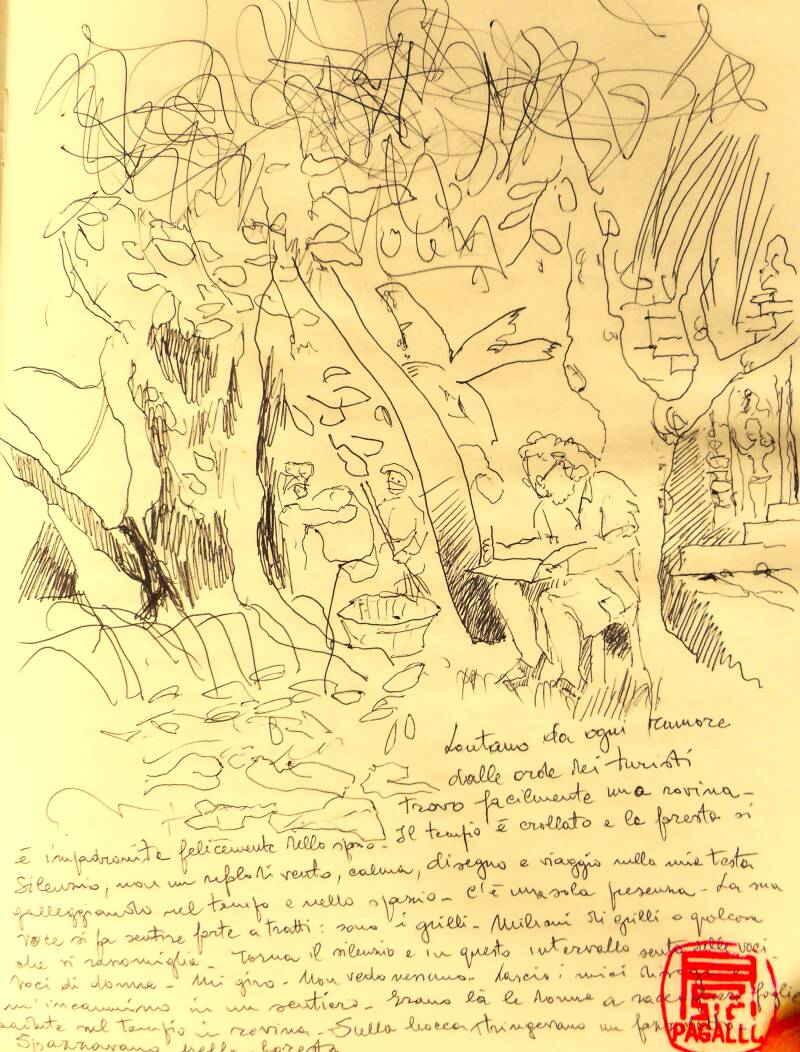 Lontano da ogni rumore
dalle orde dei turisti
trovo facilmente una rovina -
Il tempio è crollato e la foresta si
è impadronita felicemente dello spazio -
Silenzio, non un refolo di vento, calma, disegno e viaggio nella mia testa
galleggiando nel tempo e nello spazio - C'è una sola presenza - La sua
voce si fa sentire forte a tratti: sono i grilli - Milioni di grilli o qualcosa
che vi rassomiglia - Torna il silenzio e in questo intervallo sento delle voci.
Voci di donna - Mi giro - Non vedo nessuno - Lascio i miei
m'incammino in un sentiero - Erano là le donne a raccogliere foglie
cadute sul tempio in rovina - Sulla bocca stringevano un
Spazzavano nella foresta
PAGALLI